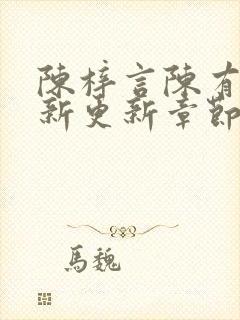 陳梓言陳有
新更新章節
馬魏